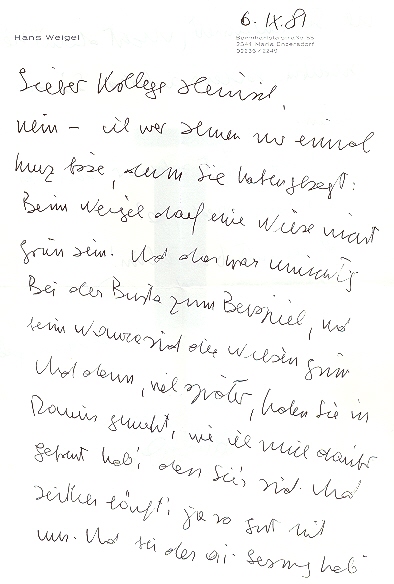 6. IX. 81
Hans Weigel
2344 Maria Enzersdorf
Lieber Kollege
nein – ich war Ihnen nur einmal
kurz böse, denn Sie haben gesagt:
Beim Weigel darf eine Wiese nicht
grün sein. Und das war unrichtig
Bei der Busta zum Beispiel, und
sind die Wiesen grün
Und dann, viel später, haben Sie in
gemacht, wie ich mich darüber
gefreut hab', dass Sie's sind. Und
seither läuft's ja so gut mit
uns. Und seit der hab'